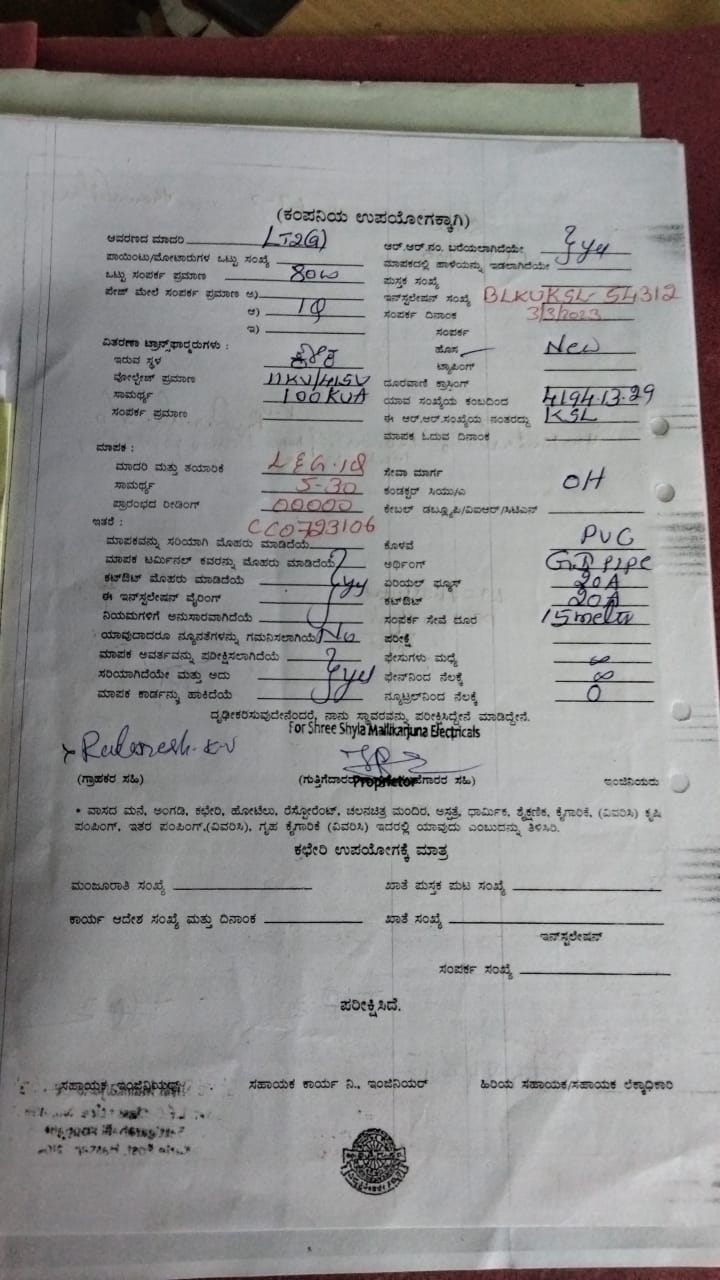 (ಕಂಪನಿಯ ಉಪಯೋಗಕ್ಕಾಗಿ)
ಆವರಣದ ಮಾದರಿ LT2(a) ಆರ್.ಆರ್.ನಂ. ಬರೆಯಲಾಗಿದೆಯೇ yes
ಪಾಯಿಂಟು/ಮೋಟಾರುಗಳ ಒಟ್ಟು ಸಂಖ್ಯೆ ಮಾಪಕದಲ್ಲಿ ಹಾಳೆಯನ್ನು ಇಡಲಾಗಿದೆಯೇ
ಒಟ್ಟು ಸಂಪರ್ಕ ಪ್ರಮಾಣ 80w ಪುಸ್ತಕ ಸಂಖ್ಯೆ
ಪೇಜ್ ಮೇಲೆ ಸಂಪರ್ಕ ಪ್ರಮಾಣ ಅ) ಇನ್‌ಸ್ಟಲೇಷನ್ ಸಂಖ್ಯೆ BLKUKSL-54312
ಆ) 1Φ ಸಂಪರ್ಕ ದಿನಾಂಕ 3/3/2023
ಇ) ಸಂಪರ್ಕ
ವಿತರಣಾ ಟ್ರಾನ್ಸ್‌ಫಾರ್ಮರುಗಳು : ಹೊಸ New
ಇರುವ ಸ್ಥಳ ಟ್ಯಾಪಿಂಗ್
ವೋಲ್ಟೇಜ್ ಪ್ರಮಾಣ 11KV/415V ದೂರವಾಣಿ ಕ್ರಾಸಿಂಗ್
ಸಾಮರ್ಥ್ಯ 100KVA ಯಾವ ಸಂಖ್ಯೆಯ ಕಂಬದಿಂದ 4194.13.29
ಸಂಪರ್ಕ ಪ್ರಮಾಣ ಈ ಆರ್.ಆರ್.ಸಂಖ್ಯೆಯ ನಂತರದ್ದು KSL
ಮಾಪಕ ಓದುವ ದಿನಾಂಕ
ಮಾಪಕ :
ಮಾದರಿ ಮತ್ತು ತಯಾರಿಕೆ L&G.1Φ ಸೇವಾ ಮಾರ್ಗ OH
ಸಾಮರ್ಥ್ಯ 5-30 ಕಂಡಕ್ಟರ್ ಸಿಯು/ಎ
ಪ್ರಾರಂಭದ ರೀಡಿಂಗ್ 00000 ಕೇಬಲ್ ಡಬ್ಲ್ಯೂಪಿ/ವಿಐಆರ್/ಸಿಟಿಎನ್
ಇತರೆ : CC0723106
ಮಾಪಕವನ್ನು ಸರಿಯಾಗಿ ಮೊಹರು ಮಾಡಿದೆಯೆ ಕೊಳವೆ PVC
ಮಾಪಕ ಟರ್ಮಿನಲ್ ಕವರನ್ನು ಮೊಹರು ಮಾಡಿದೆಯೆ ಅರ್ಥಿಂಗ್ G.I PIPE
ಕಟ್ಔಟ್ ಮೊಹರು ಮಾಡಿದೆಯೆ yes ಏರಿಯಲ್ ಫ್ಯೂಸ್ 20A
ಈ ಇನ್‌ಸ್ಟಲೇಷನ್ ವೈರಿಂಗ್ ಕಟ್ಔಟ್ 20A
ನಿಯಮಗಳಿಗೆ ಅನುಸಾರವಾಗಿದೆಯೆ ಸಂಪರ್ಕ ಸೇವೆ ದೂರ 15 metr
ಯಾವುದಾದರೂ ನ್ಯೂನತೆಗಳನ್ನು ಗಮನಿಸಲಾಗಿಯೆ No ಪರೀಕ್ಷೆ
ಮಾಪಕ ಅವರ್ತವನ್ನು ಪರೀಕ್ಷಿಸಲಾಗಿದೆಯೆ ಫೇಸುಗಳು ಮಧ್ಯೆ ∞
ಸರಿಯಾಗಿದೆಯೇ ಮತ್ತು ಅದು yes ಫೇಸ್‌ನಿಂದ ನೆಲಕ್ಕೆ ∞
ಮಾಪಕ ಕಾರ್ಡನ್ನು ಹಾಕಿದೆಯೆ ನ್ಯೂಟ್ರಲ್‌ನಿಂದ ನೆಲಕ್ಕೆ 0
ದೃಢೀಕರಿಸುವುದೇನೆಂದರೆ, ನಾನು ಸ್ಥಾವರವನ್ನು ಪರೀಕ್ಷಿಸಿದ್ದೇನೆ ಮಾಡಿದ್ದೇನೆ.
For Shree Shyla Mallikarjuna Electricals
Proprietor
(ಗ್ರಾಹಕರ ಸಹಿ) (ಗುತ್ತಿಗೆದಾರರ ಸಹಿ) ಇಂಜಿನಿಯರು
* ವಾಸದ ಮನೆ, ಅಂಗಡಿ, ಕಛೇರಿ, ಹೋಟೆಲು, ರೆಸ್ಟೋರೆಂಟ್, ಚಲನಚಿತ್ರ ಮಂದಿರ, ಆಸ್ಪತ್ರೆ, ಧಾರ್ಮಿಕ, ಶೈಕ್ಷಣಿಕ, ಕೈಗಾರಿಕೆ, (ವಿವರಿಸಿ) ಕೃಷಿ
ಪಂಪಿಂಗ್, ಇತರ ಪಂಪಿಂಗ್,(ವಿವರಿಸಿ), ಗೃಹ ಕೈಗಾರಿಕೆ (ವಿವರಿಸಿ) ಇದರಲ್ಲಿ ಯಾವುದು ಎಂಬುದನ್ನು ತಿಳಿಸಿರಿ.
ಕಛೇರಿ ಉಪಯೋಗಕ್ಕೆ ಮಾತ್ರ
ಮಂಜೂರಾತಿ ಸಂಖ್ಯೆ ಖಾತೆ ಪುಸ್ತಕ ಪುಟ ಸಂಖ್ಯೆ
ಕಾರ್ಯ ಆದೇಶ ಸಂಖ್ಯೆ ಮತ್ತು ದಿನಾಂಕ ಖಾತೆ ಸಂಖ್ಯೆ
ಇನ್‌ಸ್ಟಲೇಷನ್
ಸಂಪರ್ಕ ಸಂಖ್ಯೆ
ಪರೀಕ್ಷಿಸಿದೆ.
ಸಹಾಯಕ ಇಂಜಿನಿಯರ್ ಸಹಾಯಕ ಕಾರ್ಯ ನಿ., ಇಂಜಿನಿಯರ್ ಹಿರಿಯ ಸಹಾಯಕ/ಸಹಾಯಕ ಲೆಕ್ಕಾಧಿಕಾರಿ